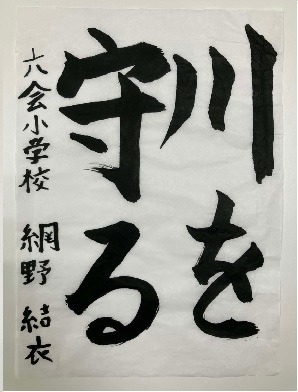 川を
守る
六会小学校 網野 結衣